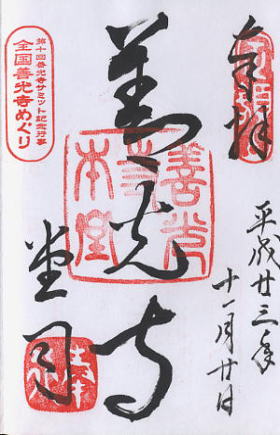 奉拝
平成廿三年
十一月廿日
善光寺
堂司
善光
本堂
第十回善光寺サミット記念行事
全国善光寺めぐり